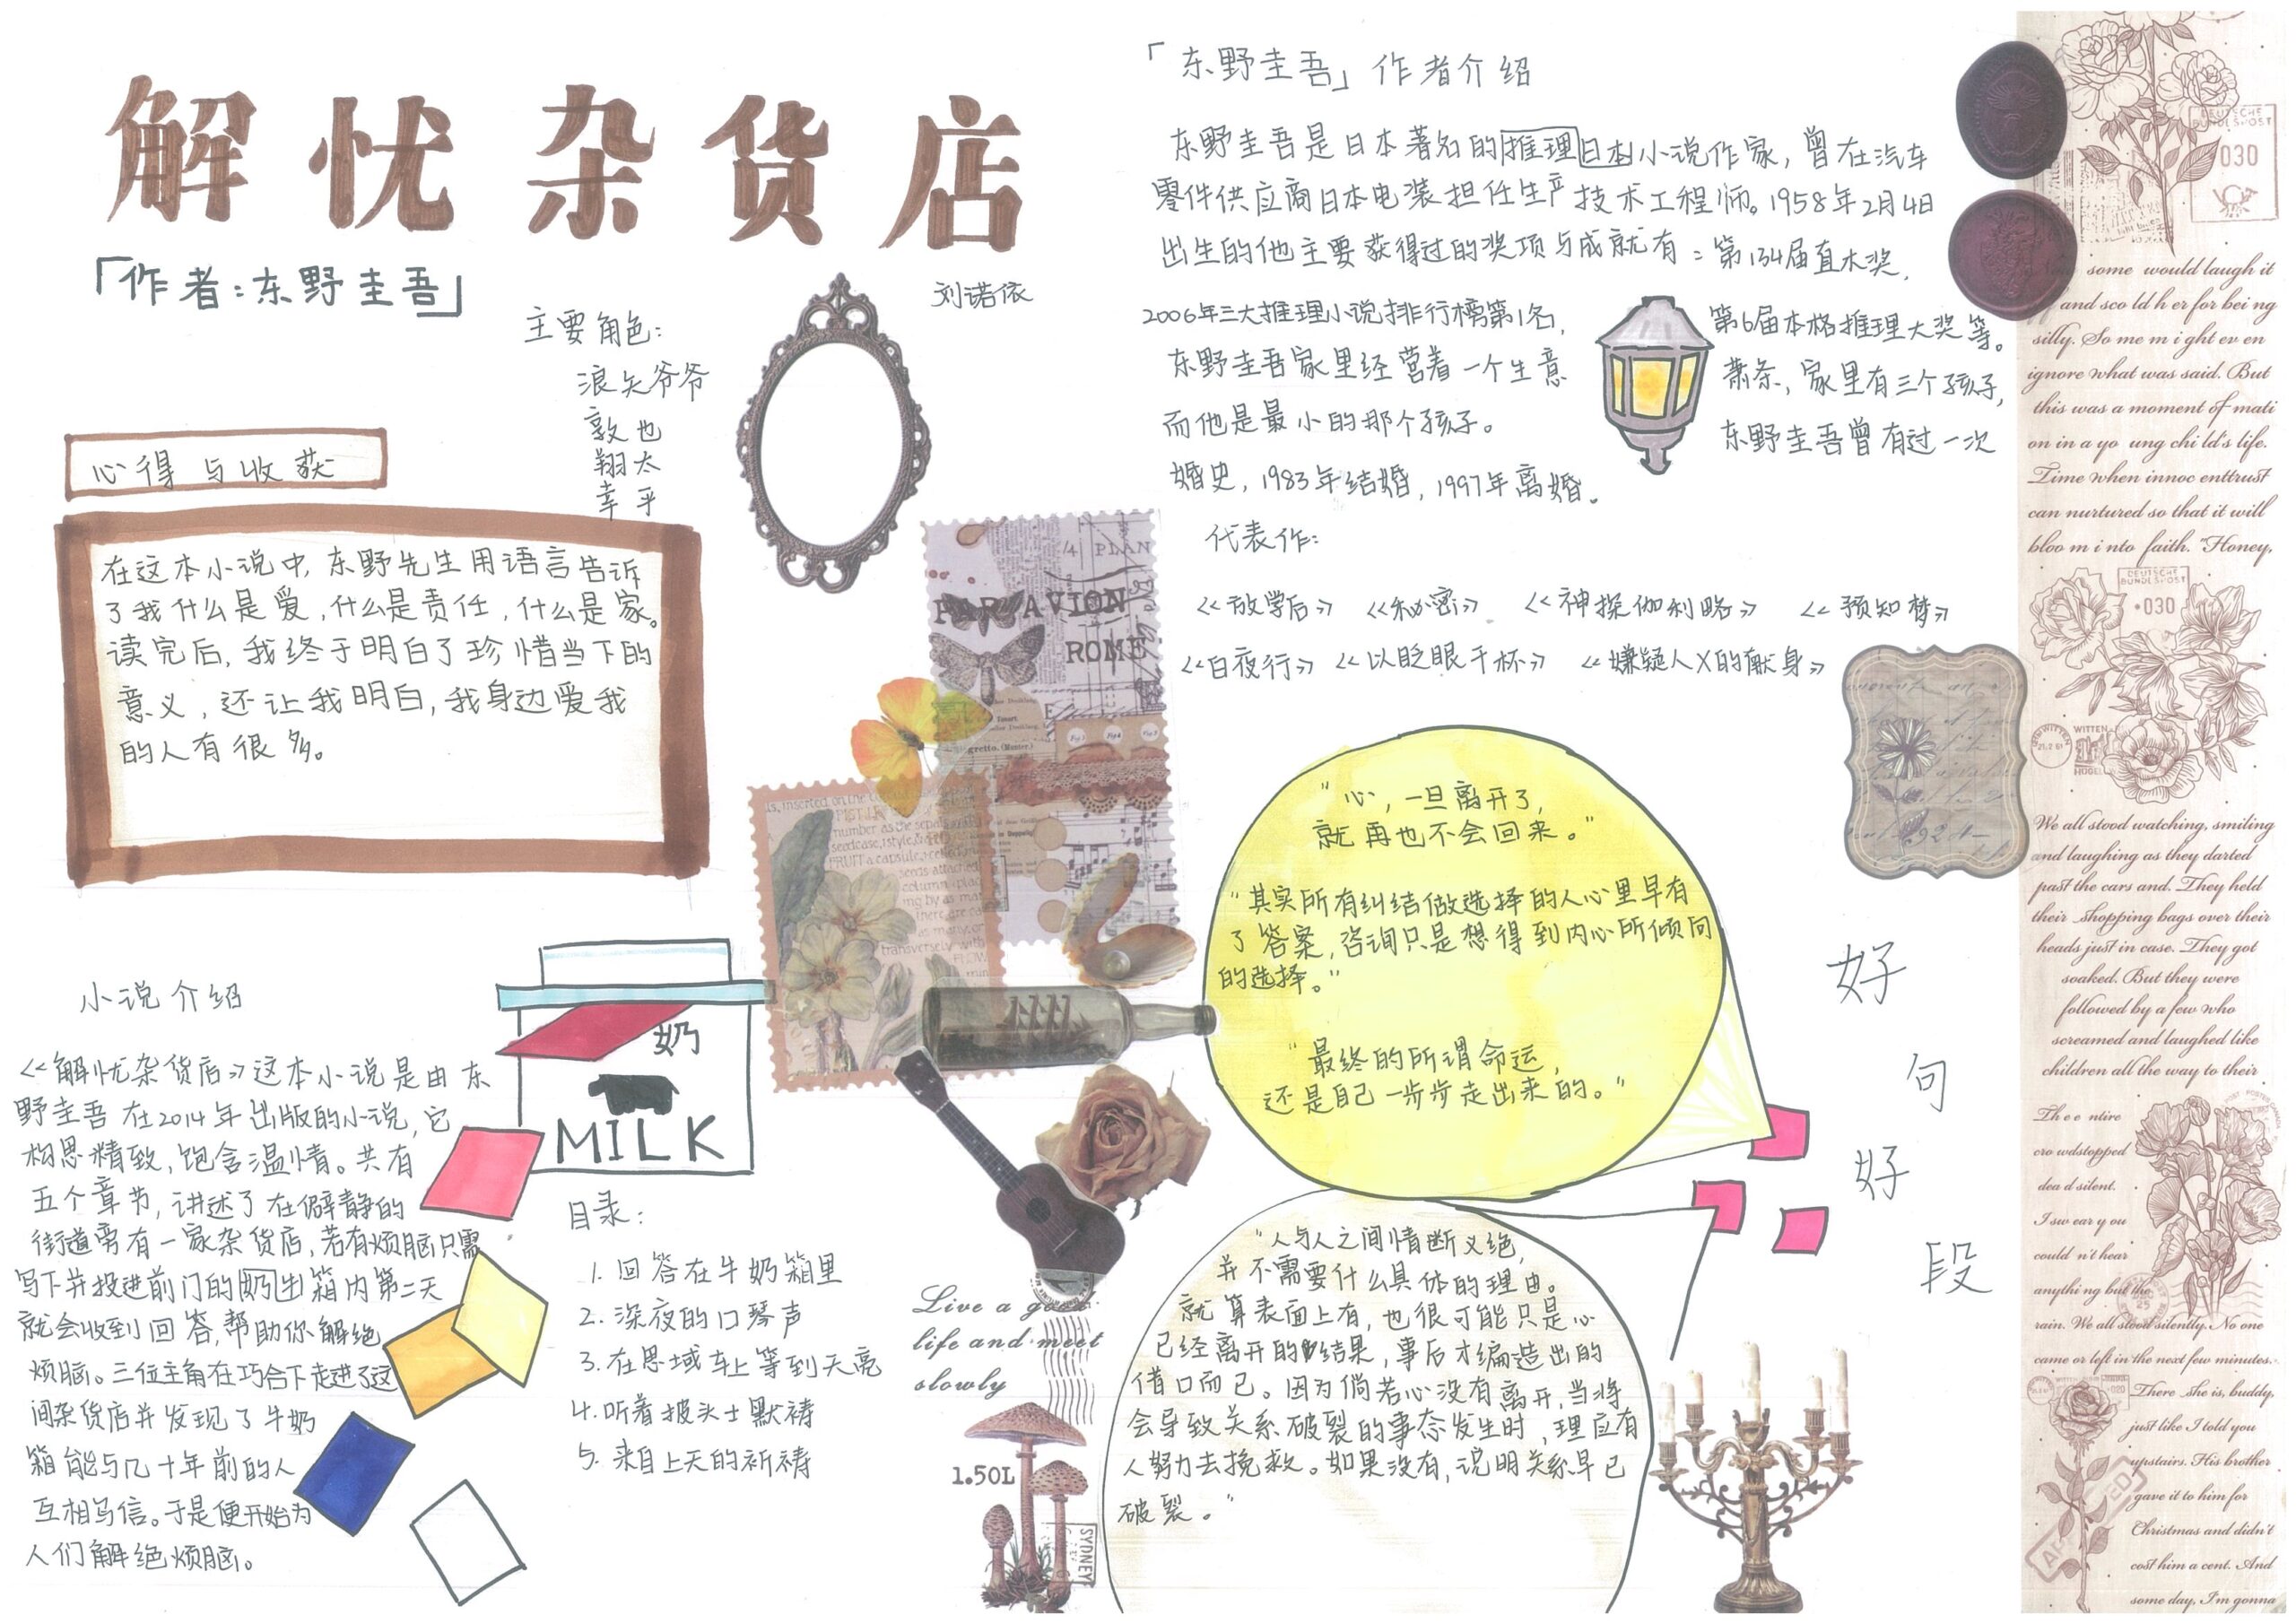 解忧杂货店
「作者:东野圭吾」
刘诺依
主要角色:
浪矢爷爷
敦也
翔太
幸平
心得与收获
在这本小说中,东野先生用语言告诉
了我什么是爱,什么是责任,什么是家。
读完后,我终于明白了珍惜当下的
意义,还让我明白,我身边爱我
的人有很多。
小说介绍
《解忧杂货店》这本小说是由东
野圭吾在2014年出版的小说,它
构思精致,饱含温情。共有
五个章节,讲述了在僻静的
街道旁有一家杂货店,若有烦脑只需
写下并投进前门的奶出箱内第二天
就会收到回答,帮助你解绝
烦脑。三位主角在巧合下走进了这
间杂货店并发现了牛奶
箱能与几十年前的人
互相写信。于是便开始为
人们解绝烦脑。
奶
MILK
目录:
1. 回答在牛奶箱里
2. 深夜的口琴声
3. 在思域车上等到天亮
4. 听着披头士默祷
5. 来自上天的祈祷
「东野圭吾」作者介绍
东野圭吾是日本著名的推理日本小说作家,曾在汽车
零件供应商日本电装担任生产技术工程师。1958年2月4日
出生的他主要获得过的奖项与成就有:第134届直木奖,
2006年三大推理小说排行榜第1名,第6届本格推理大奖等。
东野圭吾家里经营着一个生意萧条,家里有三个孩子,
而他是最小的那个孩子。东野圭吾曾有过一次
婚史,1983年结婚,1997年离婚。
代表作:
《放学后》 《秘密》 《神探伽利略》 《预知梦》
《白夜行》 《以眨眼干杯》 《嫌疑人X的献身》
PLAN
PAR AVION
ROME
"心,一旦离开了,
就再也不会回来。"
"其实所有纠结做选择的人心里早有
了答案,咨询只是想得到内心所倾向
的选择。"
"最终的所谓命运,
还是自己一步步走出来的。"
好句好段
"人与人之间情断义绝,
并不需要什么具体的理由。
就算表面上有,也很可能只是心
已经离开的结果,事后才编造出的
借口而已。因为倘若心没有离开,当将
会导致关系破裂的事态发生时,理应有
人努力去挽救。如果没有,说明关系早已
破裂。"
Live a good
life and meet
slowly
1.50L
SYDNEY
DEUTSCHE
BUNDESPOST
030
some would laugh it
and sco ld h er for bei ng
silly. So me m i ght ev en
ignore what was said. But
this was a moment of mati
on in a yo ung chi ld's life.
Time when innoc enttrust
can nurtured so that it will
bloo m i nto faith. "Honey,
DEUTSCHE
BUNDESPOST
030
WITTEN
We all stood watching, smiling
and laughing as they darted
past the cars and. They held
their shopping bags over their
heads just in case. They got
soaked. But they were
followed by a few who
screamed and laughed like
children all the way to their
Th e e ntire
cro wdstopped
dea d silent.
I sw ear y ou
could n't hear
anythi ng but the
rain. We all stood silently. No one
came or left in the next few minutes.
There she is, buddy,
just like I told you
upstairs. His brother
gave it to him for
Christmas and didn't
cost him a cent. And
some day, I'm gonna